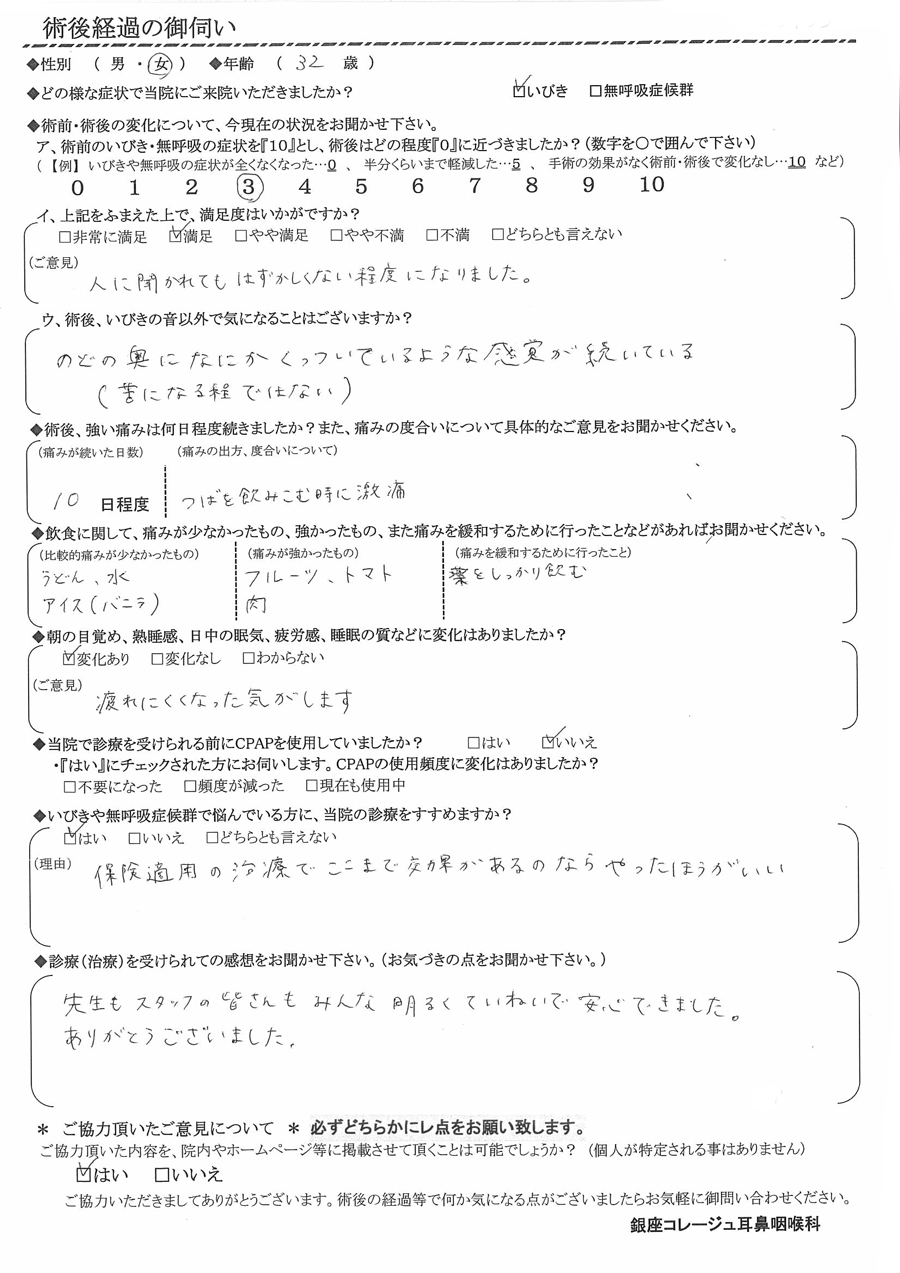 術後経過の御伺い
◆性別 ( 男 ・ 女 ) ◆年齢 ( 32 歳 )
◆どの様な症状で当院にご来院いただきましたか? ☑いびき □無呼吸症候群
◆術前・術後の変化について、今現在の状況をお聞かせ下さい。
ア、術前のいびき・無呼吸の症状を『10』とし、術後はどの程度『0』に近づきましたか?(数字を○で囲んで下さい)
(【例】いびきや無呼吸の症状が全くなくなった…0 、 半分くらいまで軽減した…5 、 手術の効果がなく術前・術後で変化なし…10 など)
0 1 2 3 4 5 6 7 8 9 10
イ、上記をふまえた上で、満足度はいかがですか?
□非常に満足 ☑満足 □やや満足 □やや不満 □不満 □どちらとも言えない
(ご意見)
人に聞かれてもはずかしくない程度になりました。
ウ、術後、いびきの音以外で気になることはございますか?
のどの奥になにかくっついているような感覚が続いている
(苦になる程ではない)
◆術後、強い痛みは何日程度続きましたか?また、痛みの度合いについて具体的なご意見をお聞かせください。
(痛みが続いた日数) (痛みの出方、度合いについて)
10 日程度 つばを飲みこむ時に激痛
◆飲食に関して、痛みが少なかったもの、強かったもの、また痛みを緩和するために行ったことなどがあればお聞かせください。
(比較的痛みが少なかったもの) (痛みが強かったもの) (痛みを緩和するために行ったこと)
うどん、水 フルーツ、トマト 薬をしっかり飲む
アイス(バニラ) 肉
◆朝の目覚め、熟睡感、日中の眠気、疲労感、睡眠の質などに変化はありましたか?
☑変化あり □変化なし □わからない
(ご意見)
疲れにくくなった気がします
◆当院で診療を受けられる前にCPAPを使用していましたか? □はい ☑いいえ
・『はい』にチェックされた方にお伺いします。CPAPの使用頻度に変化はありましたか?
□不要になった □頻度が減った □現在も使用中
◆いびきや無呼吸症候群で悩んでいる方に、当院の診療をすすめますか?
☑はい □いいえ □どちらとも言えない
(理由)
保険適用の治療でここまで効果があるのならやったほうがいい
◆診療(治療)を受けられての感想をお聞かせ下さい。(お気づきの点をお聞かせ下さい。)
先生もスタッフの皆さんもみんな明るくていねいで安心できました。
ありがとうございました。
* ご協力頂いたご意見について * 必ずどちらかにレ点をお願い致します。
ご協力頂いた内容を、院内やホームページ等に掲載させて頂くことは可能でしょうか? (個人が特定される事はありません)
☑はい □いいえ
ご協力いただきましてありがとうございます。術後の経過等で何か気になる点がございましたらお気軽に御問い合わせください。
銀座コレージュ耳鼻咽喉科